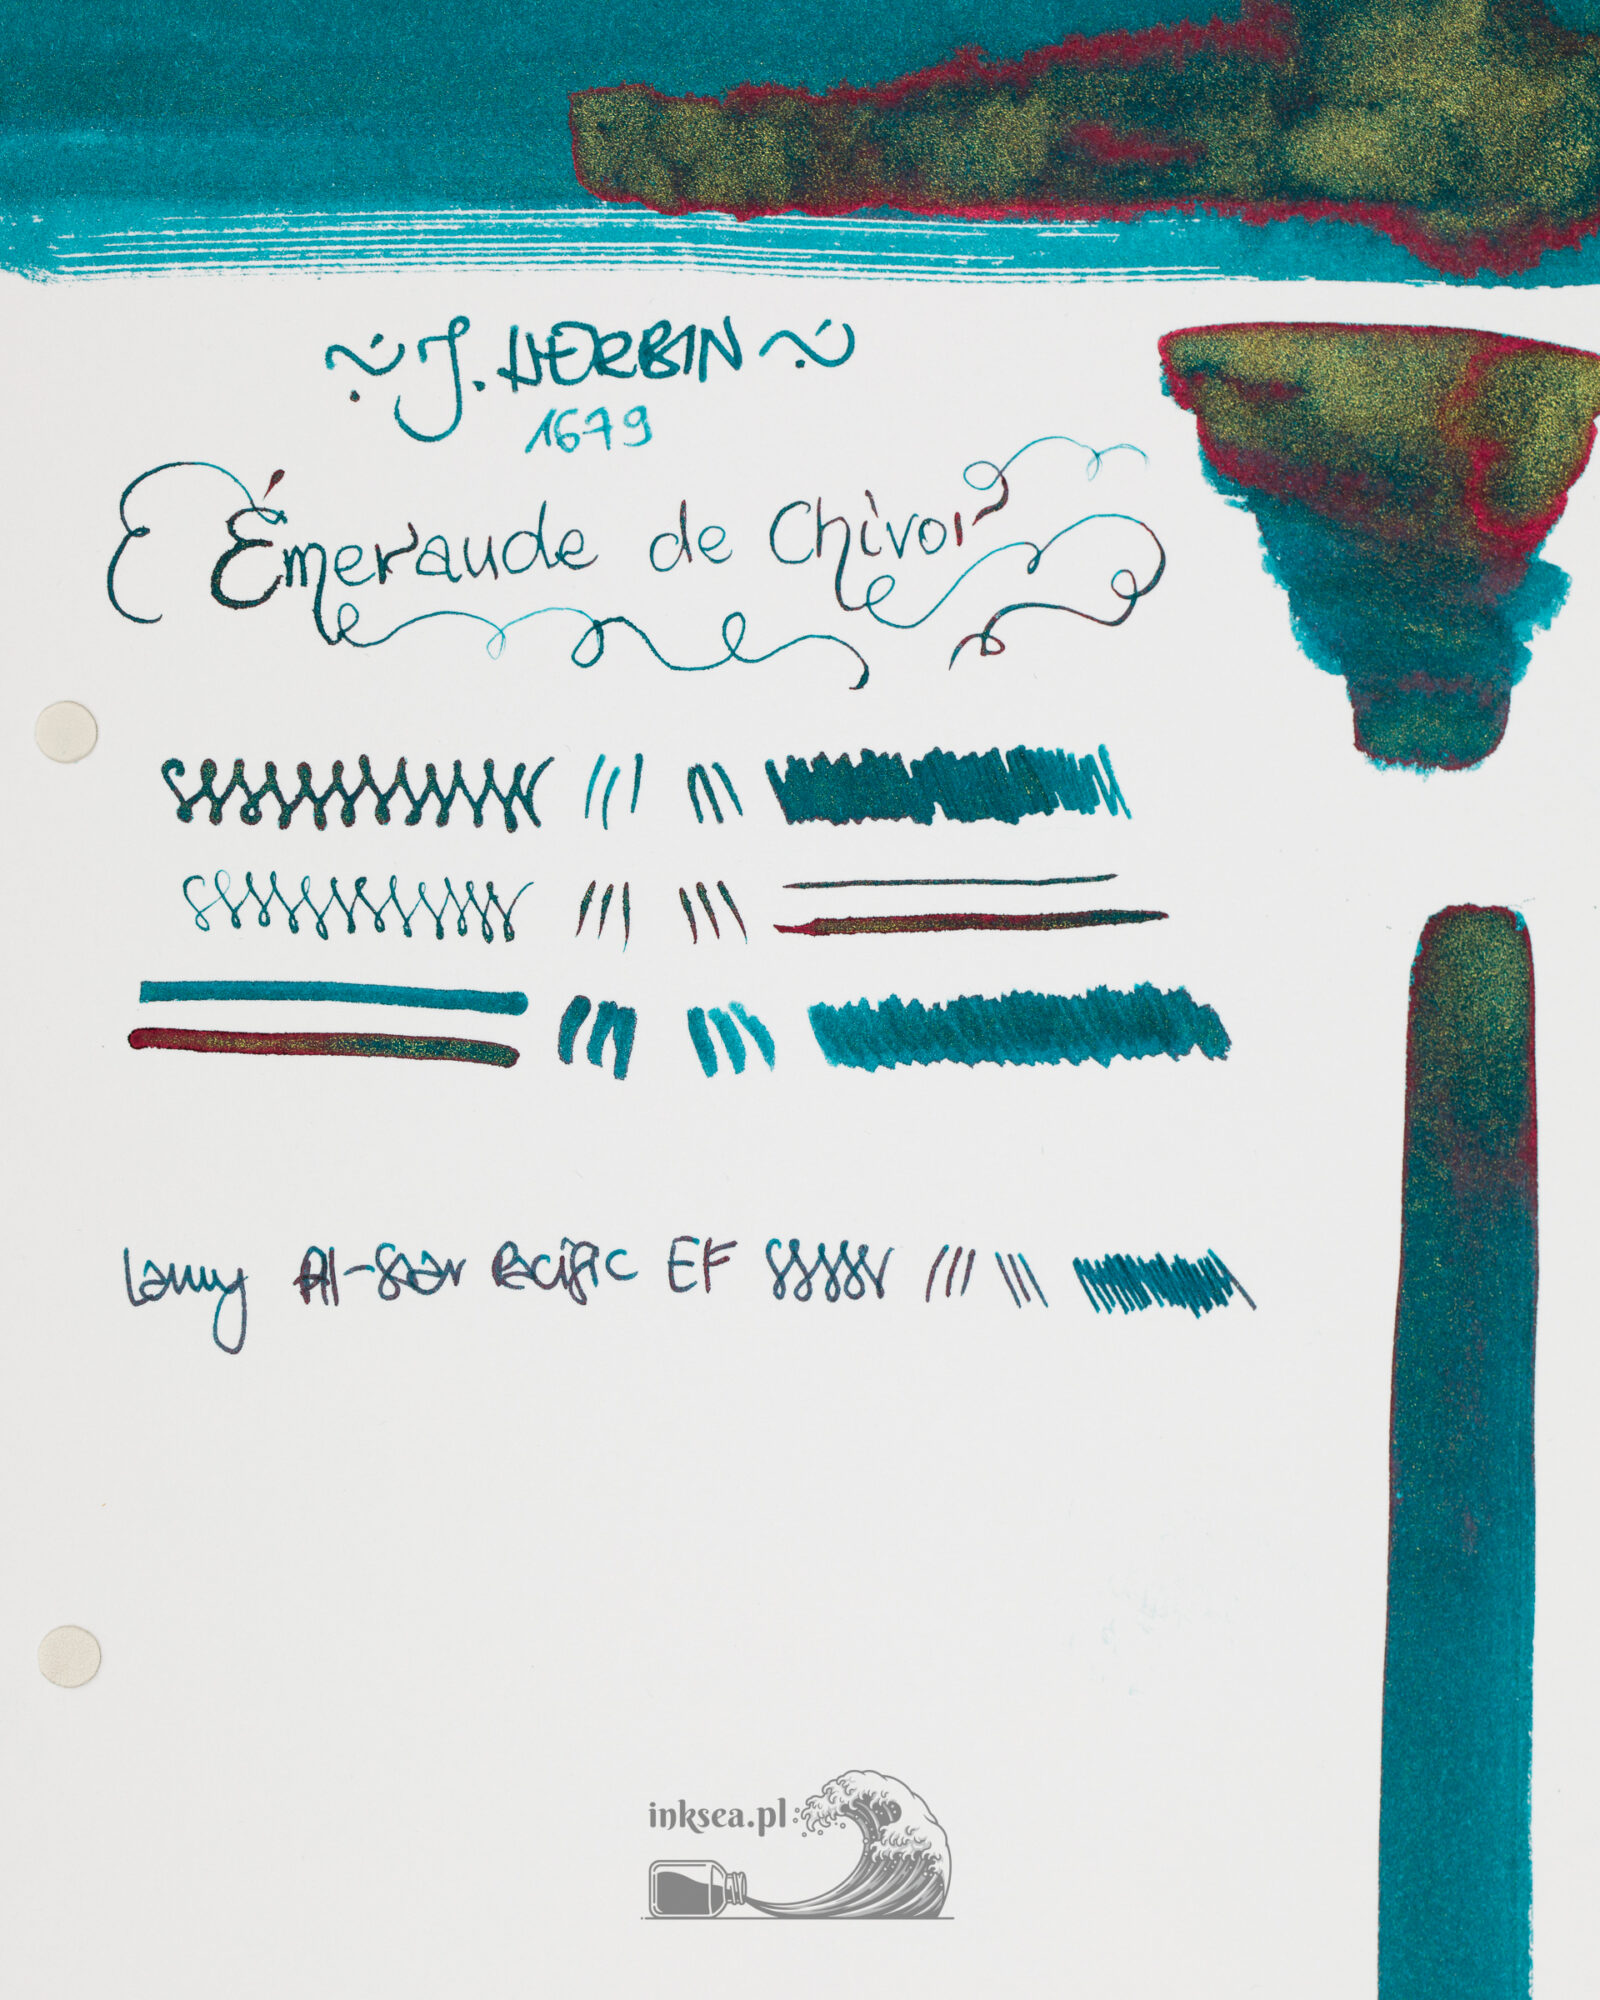 J. HERBIN
1679
Émeraude de Chivor
Lamy Al-Star Pacific EF
inksea.pl